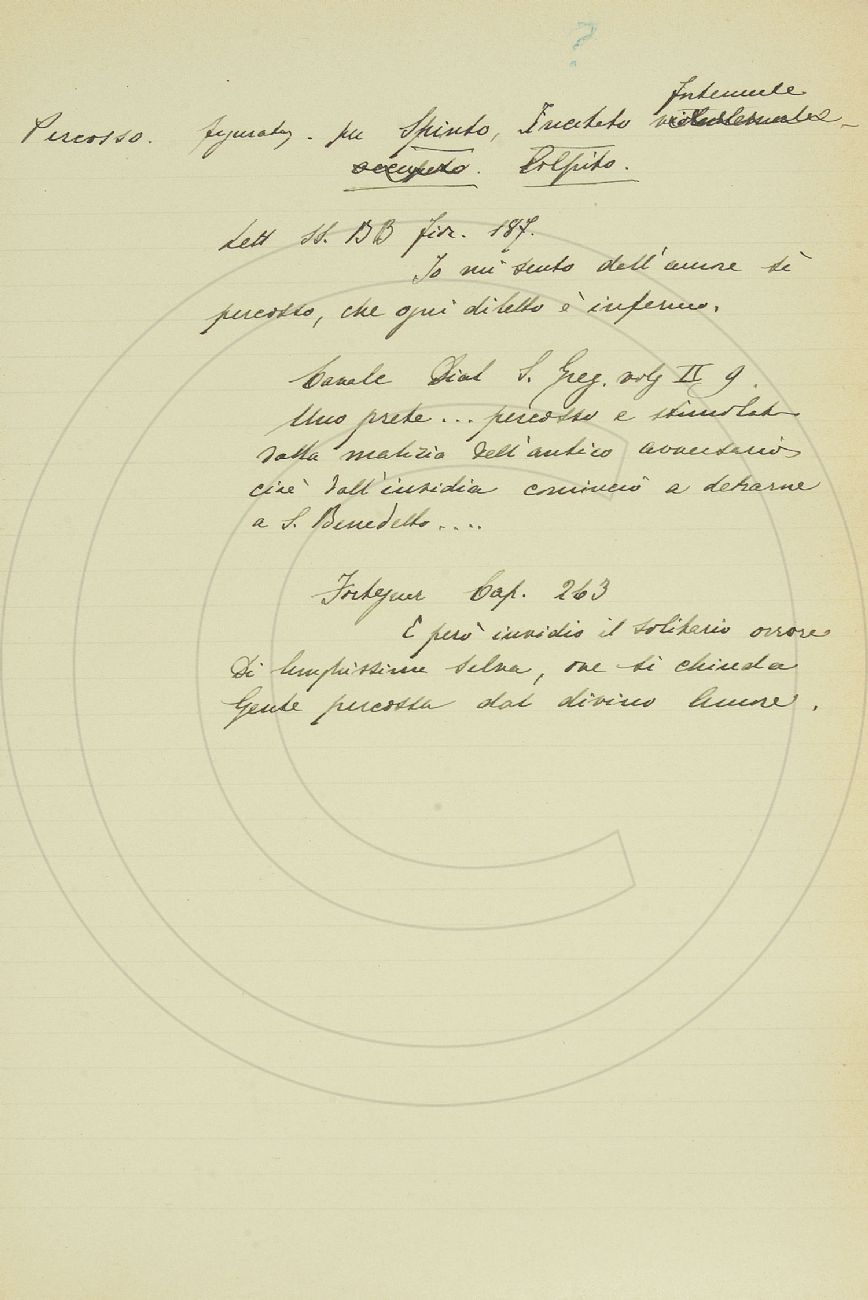 ?
fortemente
Percosso. figurataz. per Spinto, Incitato violentemente
occupato. Colpito.
Lett SS. BB fior. 187.
Io mi sento dell'amore sì
percosso, che ogni diletto è infermo.
Cavalc Dial S. Greg. volg II 9.
Uno prete... percosso e stimolato
dalla malizia dell'antico avversario
cioè dall'invidia cominciò a detrarne
a S. Benedetto....
Forteguer Cap. 263
E però invidio il solitario orrore
Di lunghissime selva, ove si chiuda
Gente percossa dal divino Amore.